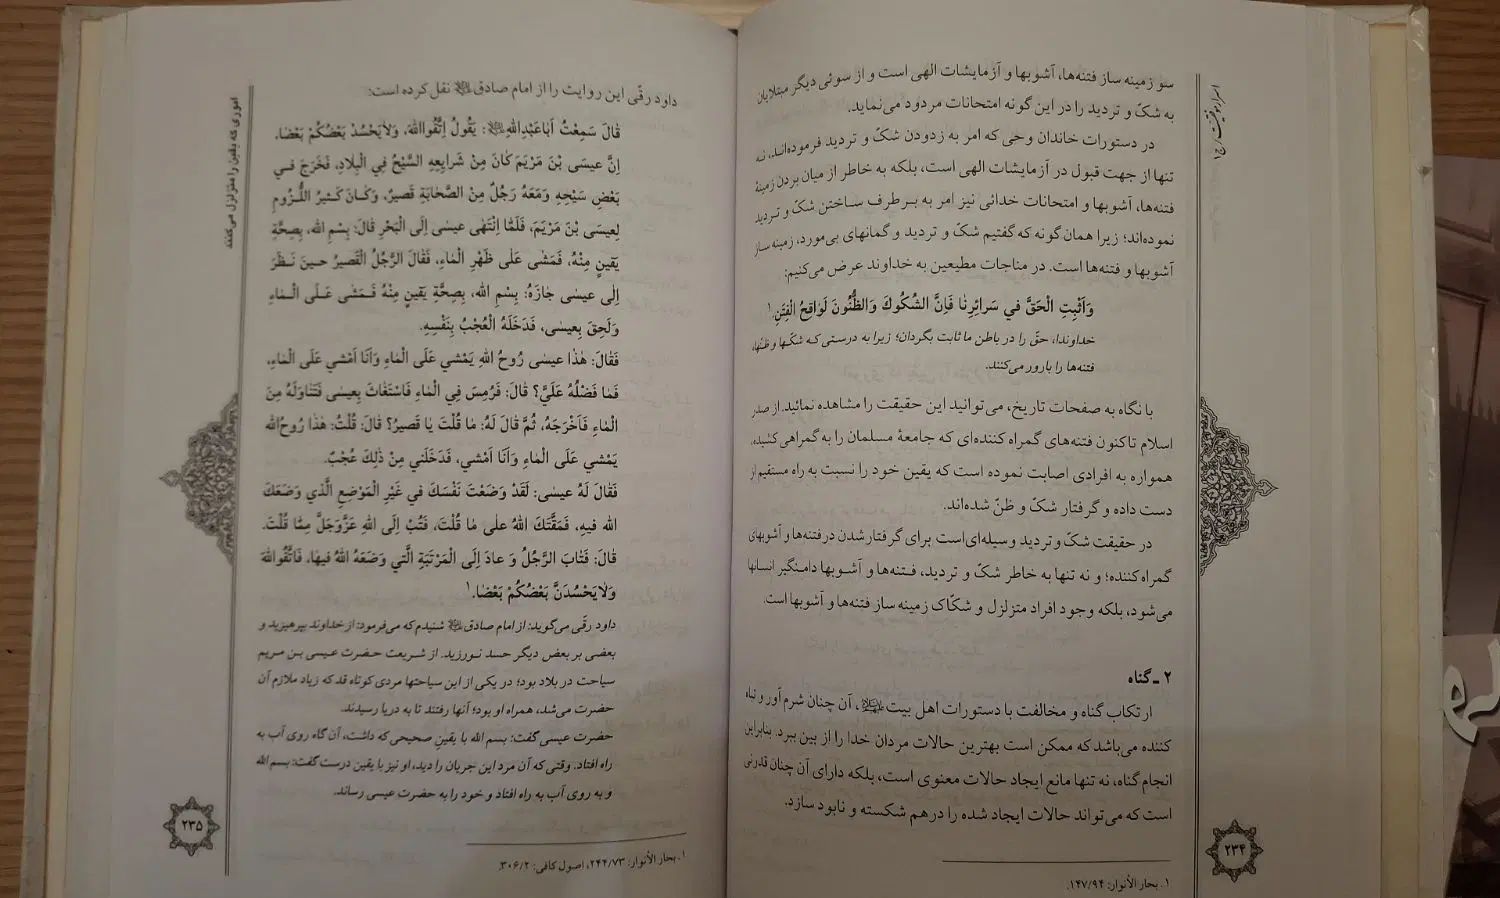 اسرار موفقیت / ج ۱
سو زمینه ساز فتنه‌ها، آشوبها و آزمایشات الهی است و از سوئی دیگر مبتلایان
به شکّ و تردید را در این گونه امتحانات مردود می‌نماید.
در دستورات خاندان وحی که امر به زدودن شکّ و تردید فرموده‌اند، نه
تنها از جهت قبول در آزمایشات الهی است، بلکه به خاطر از میان بردن زمینهٔ
فتنه‌ها، آشوبها و امتحانات خدائی نیز امر به برطرف ساختن شکّ و تردید
نموده‌اند؛ زیرا همان‌گونه که گفتیم شکّ و تردید و گمانهای بی‌مورد، زمینه ساز
آشوبها و فتنه‌ها است. در مناجات مطیعین به خداوند عرض می‌کنیم:
وَاَثْبِتِ الْحَقَّ في سَرائِرِنٰا فَإِنَّ الشُّكُوكَ وَالظُّنُونَ لَوٰاقِحُ الْفِتَنِ.۱
خداوندا، حقّ را در باطن ما ثابت بگردان؛ زیرا به درستی که شکّها و ظنّها،
فتنه‌ها را بارور می‌کنند.
با نگاه به صفحات تاریخ، می‌توانید این حقیقت را مشاهده نمائید. از صدر
اسلام تاکنون فتنه‌های گمراه کننده‌ای که جامعهٔ مسلمان را به گمراهی کشیده،
همواره به افرادی اصابت نموده است که یقین خود را نسبت به راه مستقیم از
دست داده و گرفتار شکّ و ظنّ شده‌اند.
در حقیقت شکّ و تردید وسیله‌ای است برای گرفتار شدن در فتنه‌ها و آشوبهای
گمراه کننده؛ و نه تنها به خاطر شکّ و تردید، فتنه‌ها و آشوبها دامنگیر انسانها
می‌شود، بلکه وجود افراد متزلزل و شکّاک زمینه ساز فتنه‌ها و آشوبها است.
۲ ـ گناه
ارتکاب گناه و مخالفت با دستورات اهل بیت علیهم السلام، آن چنان شرم آور و تباه
کننده می‌باشد که ممکن است بهترین حالات مردان خدا را از بین ببرد. بنابراین
انجام گناه، نه تنها مانع ایجاد حالات معنوی است، بلکه دارای آن چنان قدرتی
است که می‌تواند حالات ایجاد شده را درهم شکسته و نابود سازد.
۱. بحار الأنوار: ۱۴۷/۹۴.
۲۳۴
اموری که یقین را متزلزل می‌کنند
داود رقّی این روایت را از امام صادق علیه السلام نقل کرده است:
قٰالَ سَمِعْتُ اَبٰاعَبْدِاللهِ علیه السلام: يَقُولُ اِتَّقُوااللهَ، وَلاٰيَحْسُدْ بَعْضُكُمْ بَعْضًا.
إِنَّ عيسَى بْنَ مَرْيَمَ كٰانَ مِنْ شَرٰايِعِهِ السَّيْحُ فِي الْبِلاٰدِ، فَخَرَجَ في
بَعْضِ سَيْحِهِ وَمَعَهُ رَجُلٌ مِنَ الصَّحٰابَةِ قَصيرٌ، وَكٰانَ كَثيرُ اللُّزُومِ
لِعيسَى بْنِ مَرْيَمَ، فَلَمَّا انْتَهٰى عيسىٰ إِلَى الْبَحْرِ قٰالَ: بِسْمِ اللهِ، بِصِحَّةِ
يَقينٍ مِنْهُ، فَمَشٰى عَلىٰ ظَهْرِ الْمٰاءِ، فَقٰالَ الرَّجُلُ الْقَصيرُ حينَ نَظَرَ
إِلىٰ عيسىٰ جٰازَهُ: بِسْمِ اللهِ، بِصِحَّةِ يَقينٍ مِنْهُ فَمَشٰى عَلَى الْمٰاءِ
وَلَحِقَ بِعيسىٰ، فَدَخَلَهُ الْعُجْبُ بِنَفْسِهِ.
فَقٰالَ: هٰذٰا عيسىٰ رُوحُ اللهِ يَمْشي عَلَى الْمٰاءِ وَاَنَا اَمْشي عَلَى الْمٰاءِ،
فَمٰا فَضْلُهُ عَلَيَّ؟ قٰالَ: فَرُمِسَ فِي الْمٰاءِ فَاسْتَغٰاثَ بِعيسىٰ فَتَنٰاوَلَهُ مِنَ
الْمٰاءِ فَاَخْرَجَهُ، ثُمَّ قٰالَ لَهُ: مٰا قُلْتَ يٰا قَصيرُ؟ قٰالَ: قُلْتُ: هٰذٰا رُوحُ‌الله
يَمْشي عَلَى الْمٰاءِ وَاَنَا اَمْشي، فَدَخَلَني مِنْ ذٰلِكَ عُجْبٌ.
فَقٰالَ لَهُ عيسىٰ: لَقَدْ وَضَعْتَ نَفْسَكَ في غَيْرِ الْمَوْضِعِ الَّذي وَضَعَكَ
الله فيهِ، فَمَقَّتَكَ اللهُ عَلىٰ مٰا قُلْتَ، فَتُبْ إِلَى اللهِ عَزَّوَجَلَّ مِمّٰا قُلْتَ.
قٰالَ: فَتٰابَ الرَّجُلُ وَ عٰادَ إِلَى الْمَرْتَبَةِ الَّتي وَضَعَهُ اللهُ فيهٰا، فَاتَّقُواللهَ
وَلاٰيَحْسُدَنَّ بَعْضُكُمْ بَعْضًا.۱
داود رقّی می‌گوید: از امام صادق علیه السلام شنیدم که می‌فرمود: از خداوند بپرهیزید و
بعضی بر بعض دیگر حسد نورزید. از شریعت حضرت عیسی بن مریم
سیاحت در بلاد بود؛ در یکی از این سیاحتها مردی کوتاه قد که زیاد ملازم آن
حضرت می‌شد، همراه او بود؛ آنها رفتند تا به دریا رسیدند.
حضرت عیسی گفت: بسم الله با یقینِ صحیحی که داشت، آن گاه روی آب به
راه افتاد. وقتی که آن مرد این جریان را دید، او نیز با یقین درست گفت: بسم الله
و به روی آب به راه افتاد و خود را به حضرت عیسی رساند.
۱. بحار الأنوار: ۲۴۴/۷۳، اصول کافی: ۳۰۶/۲.
۲۳۵